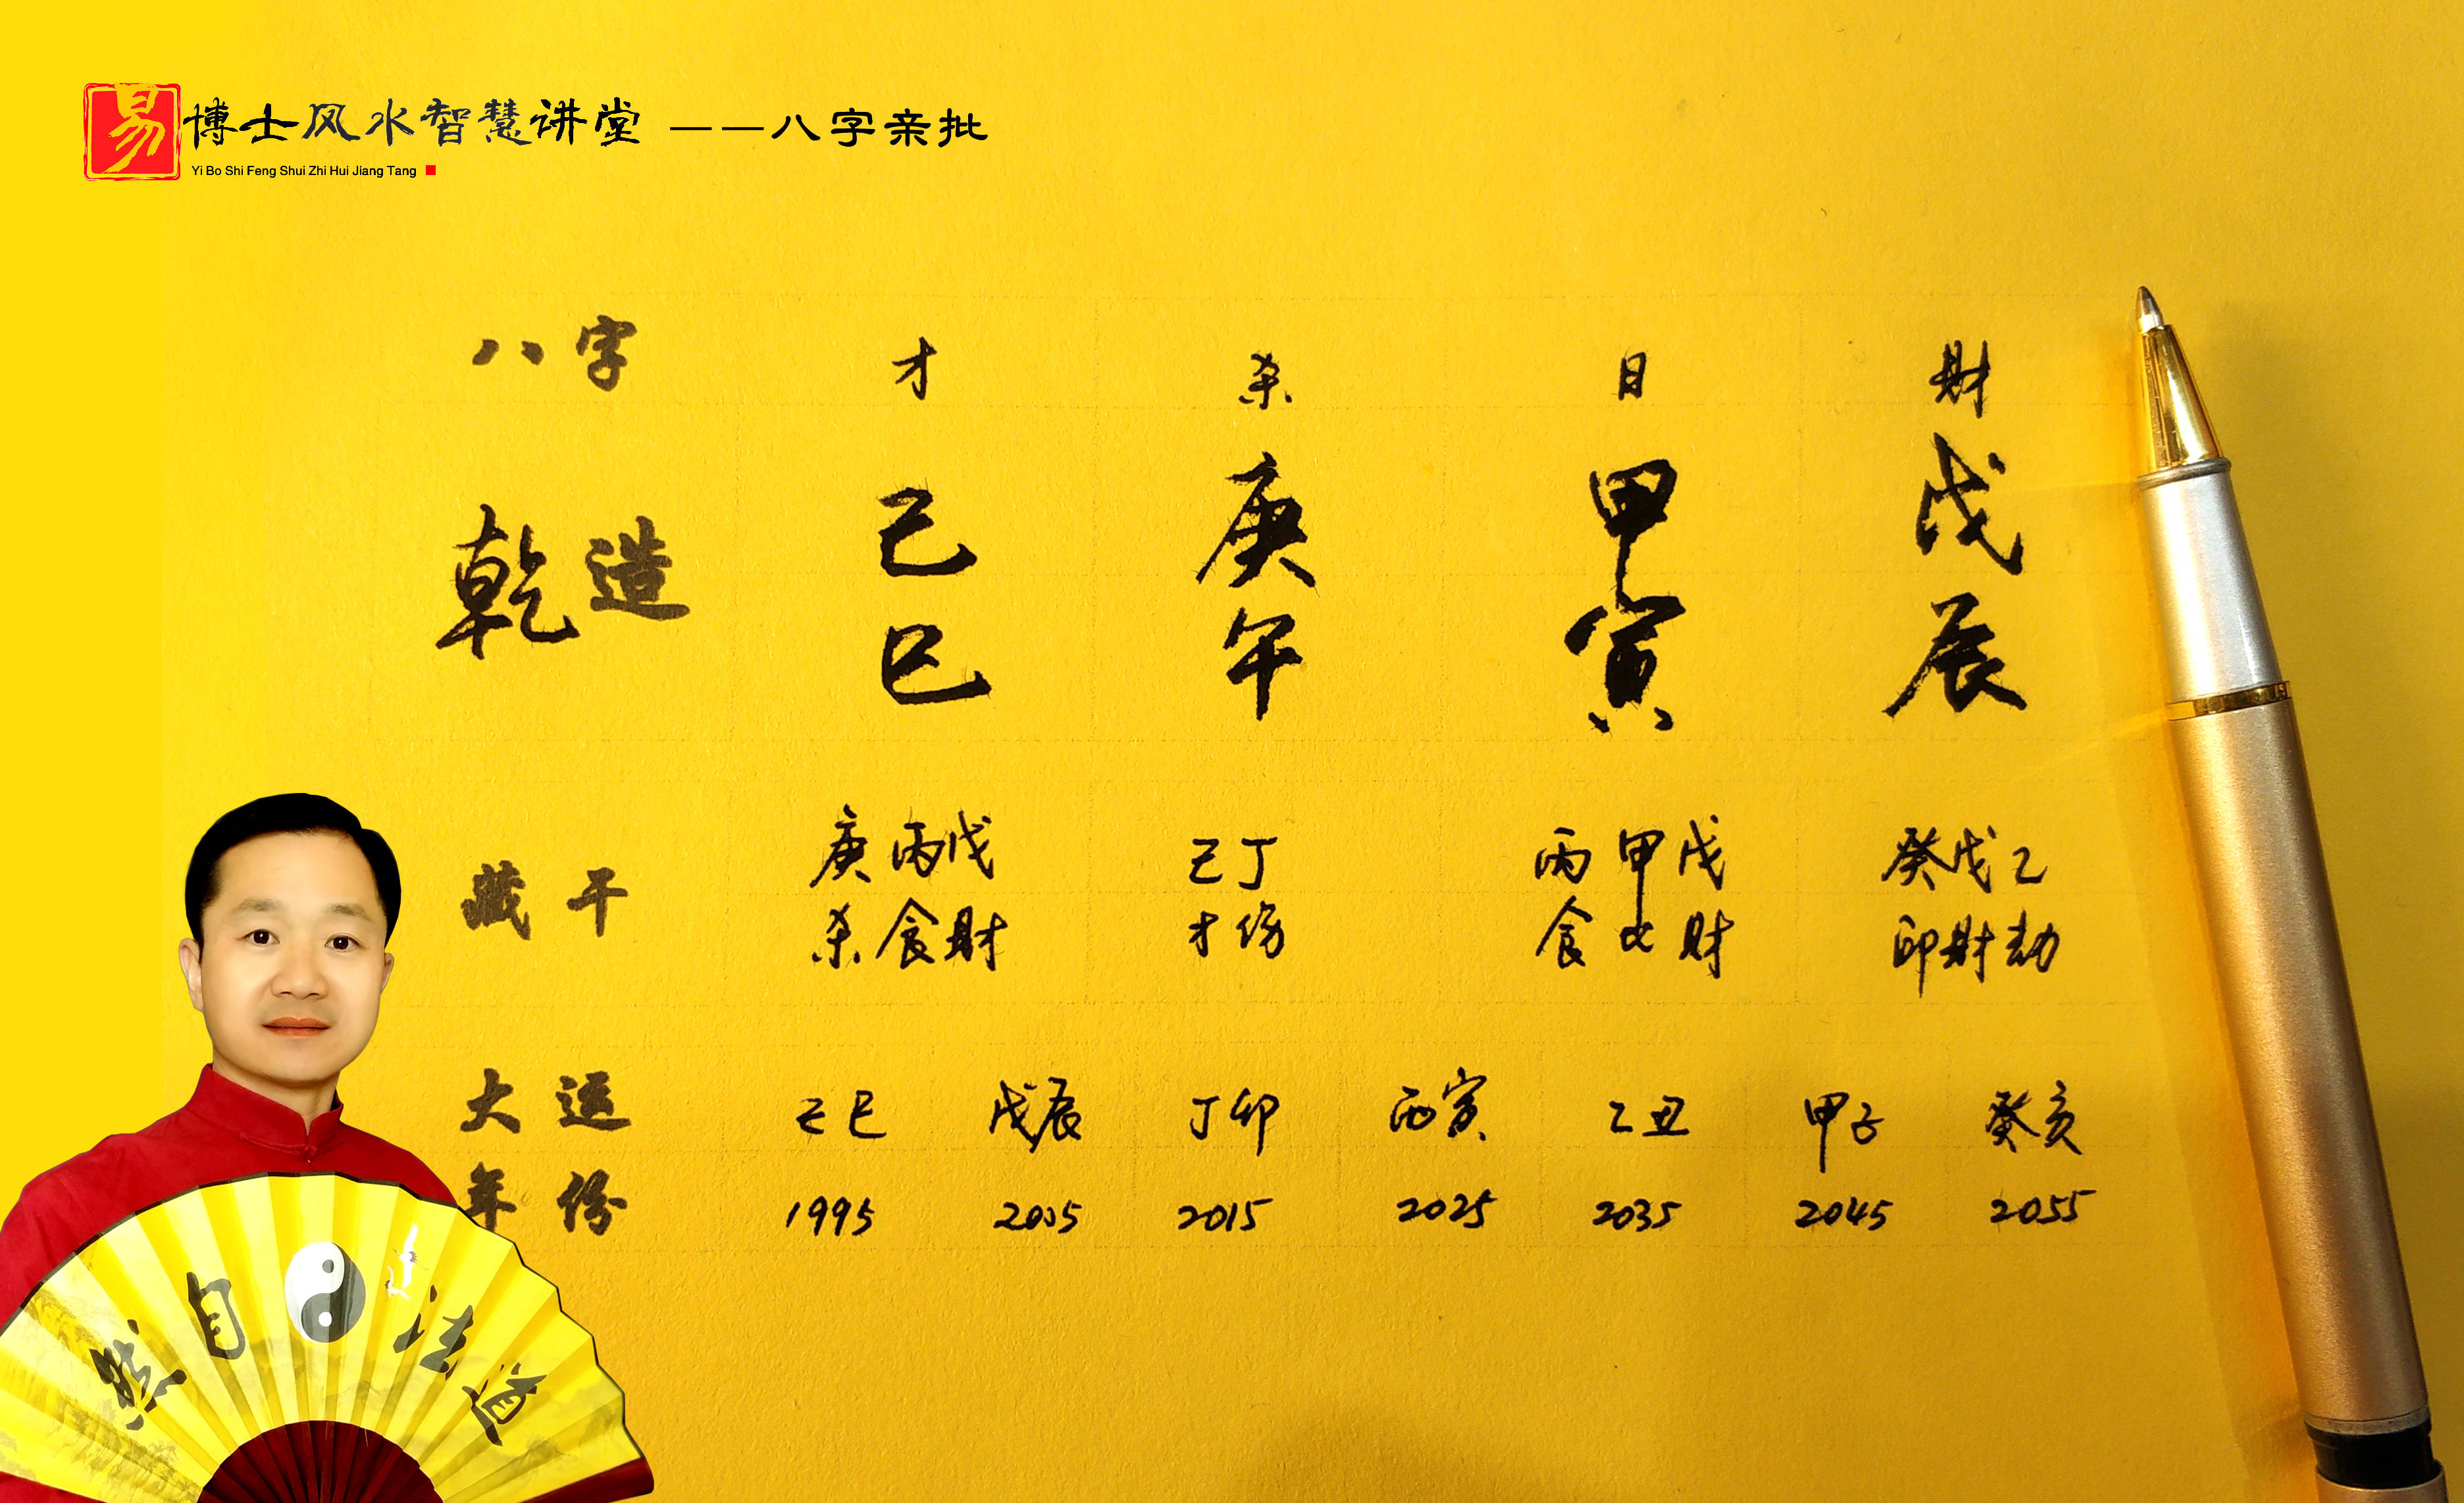 易博士风水智慧讲堂 ——八字亲批
Yi Bo Shi Feng Shui Zhi Hui Jiang Tang
八字 才 杀 日 财
乾造 己 庚 甲 戊
巳 午 寅 辰
藏干 庚丙戊 己丁 丙甲戊 癸戊乙
杀食財 才伤 食比财 印財劫
大运 己巳 戊辰 丁卯 丙寅 乙丑 甲子 癸亥
年份 1995 2005 2015 2025 2035 2045 2055
然自法道